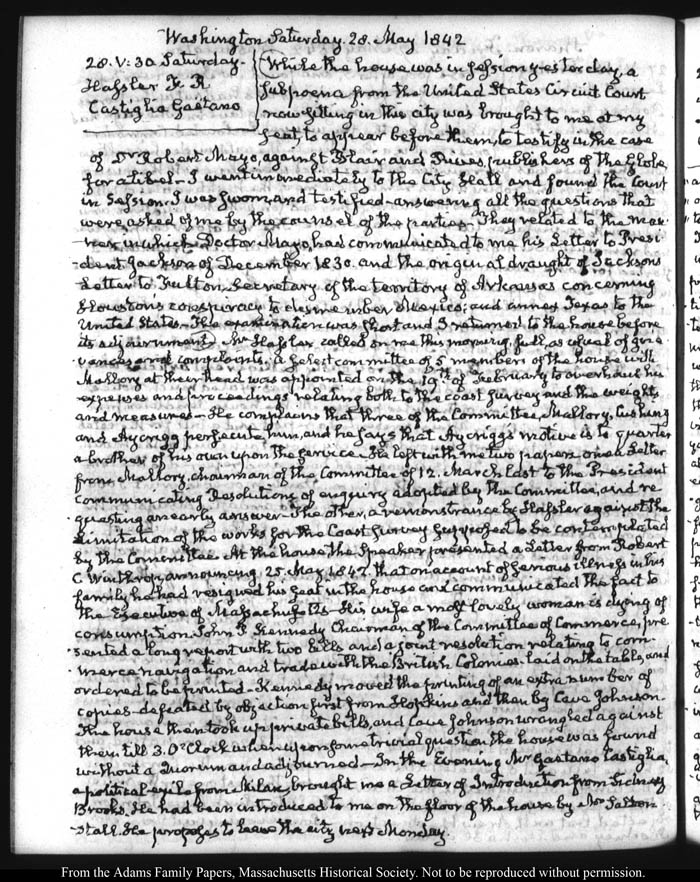 Washington Saturday. 28. May 1842
28. V:30. Saturday.
Hassler F. R
Castiglia Gaetano
While the house was in session yesterday, a
subpoena from the United States Circuit Court
now sitting in this city was brought to me at my
seat, to appear before them, to testify in the case
of Dr Robert Mayo, against Blair and Rives, publishers of the Globe,
for a libel. I went immediately to the City Hall and found the Court
in Session. I was sworn, and testified answering all the questions that
were asked of me by the counsel of the parties. They related to the man-
-ner in which Doctor Mayo, had communicated to me his Letter to Presi-
-dent Jackson of December 1830. and the original draught of Jackson's
Letter to Fulton, Secretary of the territory of Arkansas concerning
Houston's conspiracy to dismember Mexico, and annex Texas to the
United States. The examination was short and I returned to the house before
its adjournment. Mr Hassler called on me this morning, full, as usual of grie-
-vances and complaints. A select committee of 5 members of the house with
Mallory at their head was appointed on the 19th of February to overhaul his
expenses and proceedings relating both to the coast survey and the weights
and measures. He complains that three of the Committee, Mallory, Cushing
and Aycrigg persecute him, and he says that Aycrigg's motive is to quarter
a brother of his own upon the service. He left with me two papers, one a Letter
from Mallory, chairman of the Committee of 12. March last to the President
communicating Resolutions of enquiry adopted by the Committee, and re-
-questing an early answer. The other, a remonstrance by Hassler against the
limitation of the works for the Coast Survey supposed to be contemplated
by the Committee. At the house, the Speaker presented a Letter from Robert
C Winthrop, announcing, 25. May 1842. that on account of serious illness in his
family, he had resigned his seat in the house and communicated the fact to
the Executive of Massachusetts. His wife a most lovely woman is dying of
consumption. John P. Kennedy Chairman of the Committee of Commerce, pre-
-sented a long report with two bills and a joint resolution relating to com-
-merce navigation and trade with the British Colonies. laid on the table, and
ordered to be printed. Kennedy moved the printing of an extra number of
copies. defeated by objection first from Hopkins and then by Cave Johnson.
The house then took up private bills, and Cave Johnson wrangled against
them till 3. O'Clock when upon some trivial question the house was found
without a Quorum and adjourned. In the Evening Mr Gaetano Castiglia,
a political exile from Milan, brought me a Letter of Introduction from Sidney
Brooks. He had been introduced to me on the floor of the house by Mr Salton-
-stall. He proposes to leave the city next Monday.
From the Adams Family Papers, Massachusetts Historical Society. Not to be reproduced without permission.